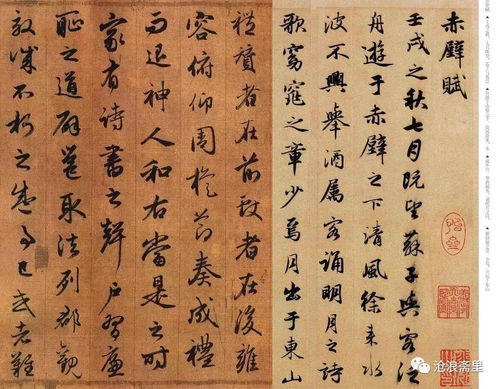 赤壁賦
壬戌之秋七月既望蘇子與客泛
舟遊于赤壁之下清風徐來水
波不興舉酒屬客誦明月之詩
歌窈窕之章少焉月出于東山
者在前 者在後雍
容俯仰周旋節奏成禮
而退神人和右當是之時
家有詩書之聲戶習廉
恥之道辟雍取法列郡觀
效誠不朽之盛事已或老難
沧浪斋里